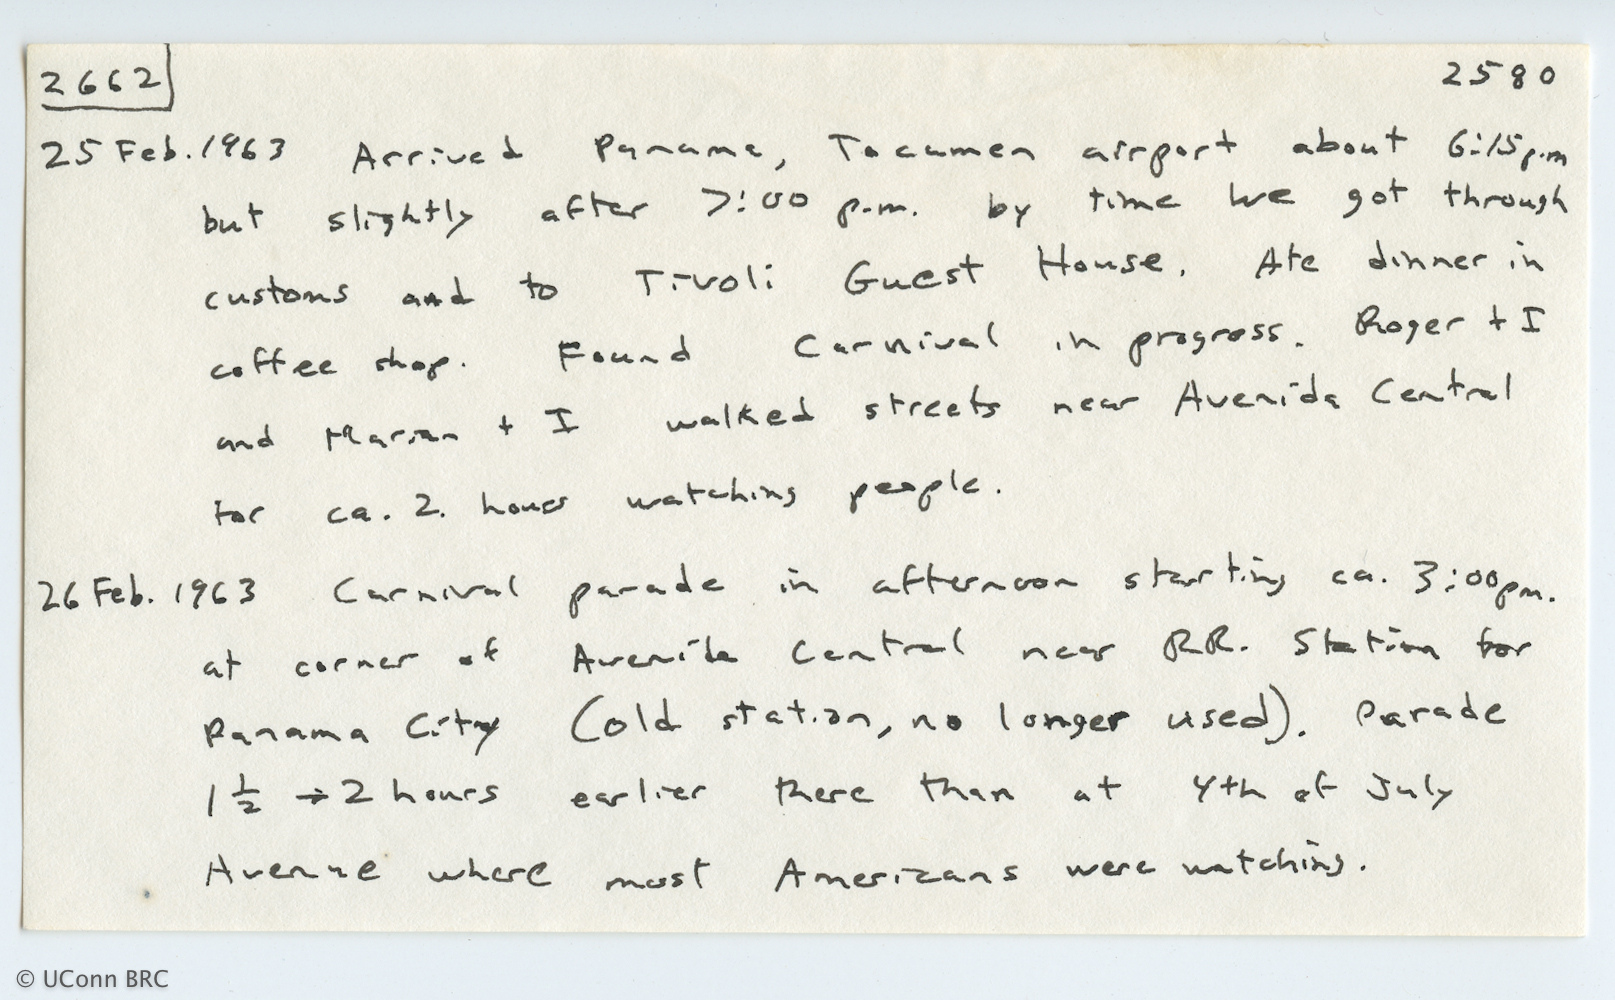 2662 2580
25 Feb. 1963 Arrived Panama, Tocumen airport about 6:15 p.m
but slightly after 7:00 p.m. by time we got through
customs and to Tivoli Guest House. Ate dinner in
coffee shop. Found Carnival in progress. Roger + I
and Marian + I walked streets near Avenida Central
for ca. 2. hours watching people.
26 Feb. 1963 Carnival parade in afternoon starting ca. 3:00 pm.
at corner of Avenida Central near RR. Station for
Panama City (old station, no longer used). Parade
1 1/2 → 2 hours earlier there than at 4th of July
Avenue where most Americans were watching.
© UConn BRC